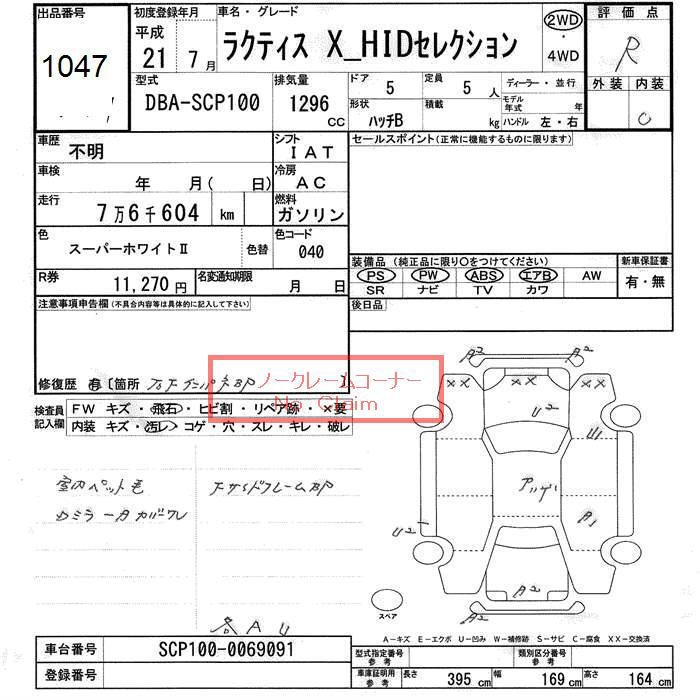 出品番号
1047
初度登録年月
平成
21 7月
車名・グレード
ラクティス X_HIDセレクション
2WD
・
4WD
評価点
R
外装 内装
C
型式
DBA-SCP100
排気量
1296
CC
ドア 5
定員 5 人
ディーラー・並行
形状 ハッチB
積載 kg
モデル年式 年
ハンドル 左・右
車歴 不明
シフト IAT
セールスポイント(正常に機能するものに限ります)
車検 年 月( 日)
冷房 AC
走行 7万6千604 km
燃料 ガソリン
色 スーパーホワイトⅡ 色替
色コード 040
R券 11,270 円
名変通知期限 月 日
装備品 (純正品に限り○をつけてください)
PS PW ABS エアB AW
SR ナビ TV カワ
新車保証書
有・無
注意事項申告欄(不具合内容等は具体的に記入して下さい)
後日品
修復歴 有 〔箇所
ノークレームコーナー
No Claim
検査員記入欄
FW キズ・飛石・ヒビ割・リペア跡・×要
内装 キズ・汚レ・コゲ・穴・スレ・キレ・破レ
室内ペット毛
カミラー一カカバワレ
FサイドフレームBP
各AU
A2 A2
XX XX
U2
U1
アリゲ
A1
U2
A2
A2
スペア
A-キズ E-エクボ U-凹み W-補修跡 S-サビ C-腐食 XX-交換済
車台番号 SCP100-0069091
登録番号
型式指定番号 参考
類別区分番号 参考
車庫証明用 参考
長さ 395 cm 幅 169 cm 高さ 164 cm